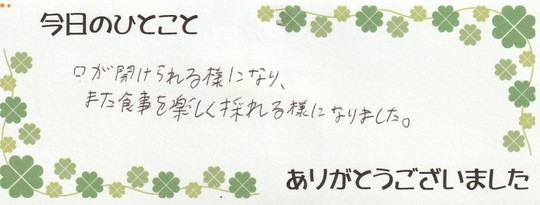 今日のひとこと
口が開けられる様になり、
また食事を楽しく採れる様になりました。
ありがとうございました